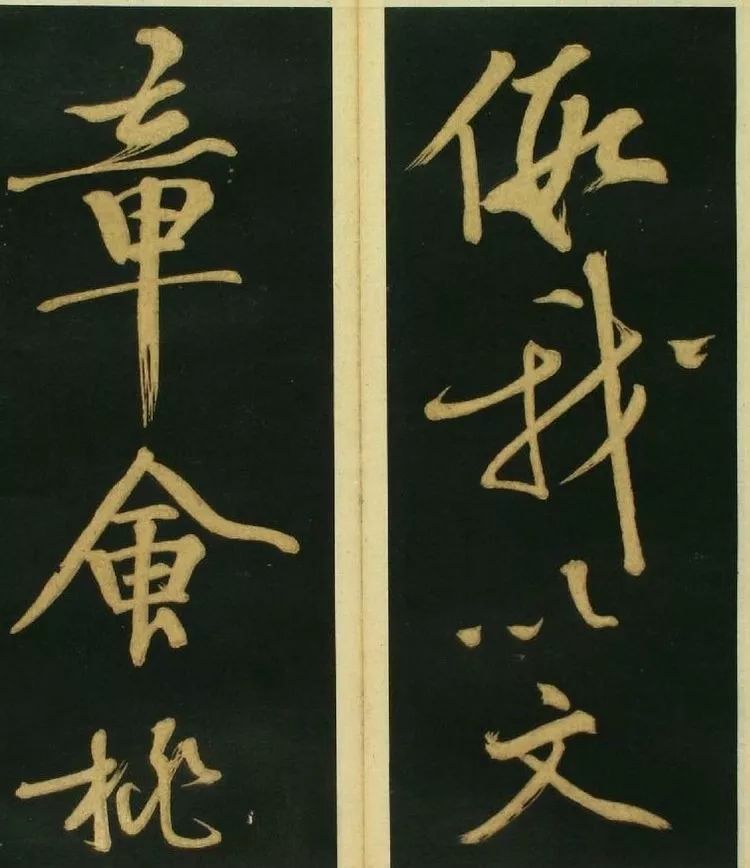 假我以文
章會桃